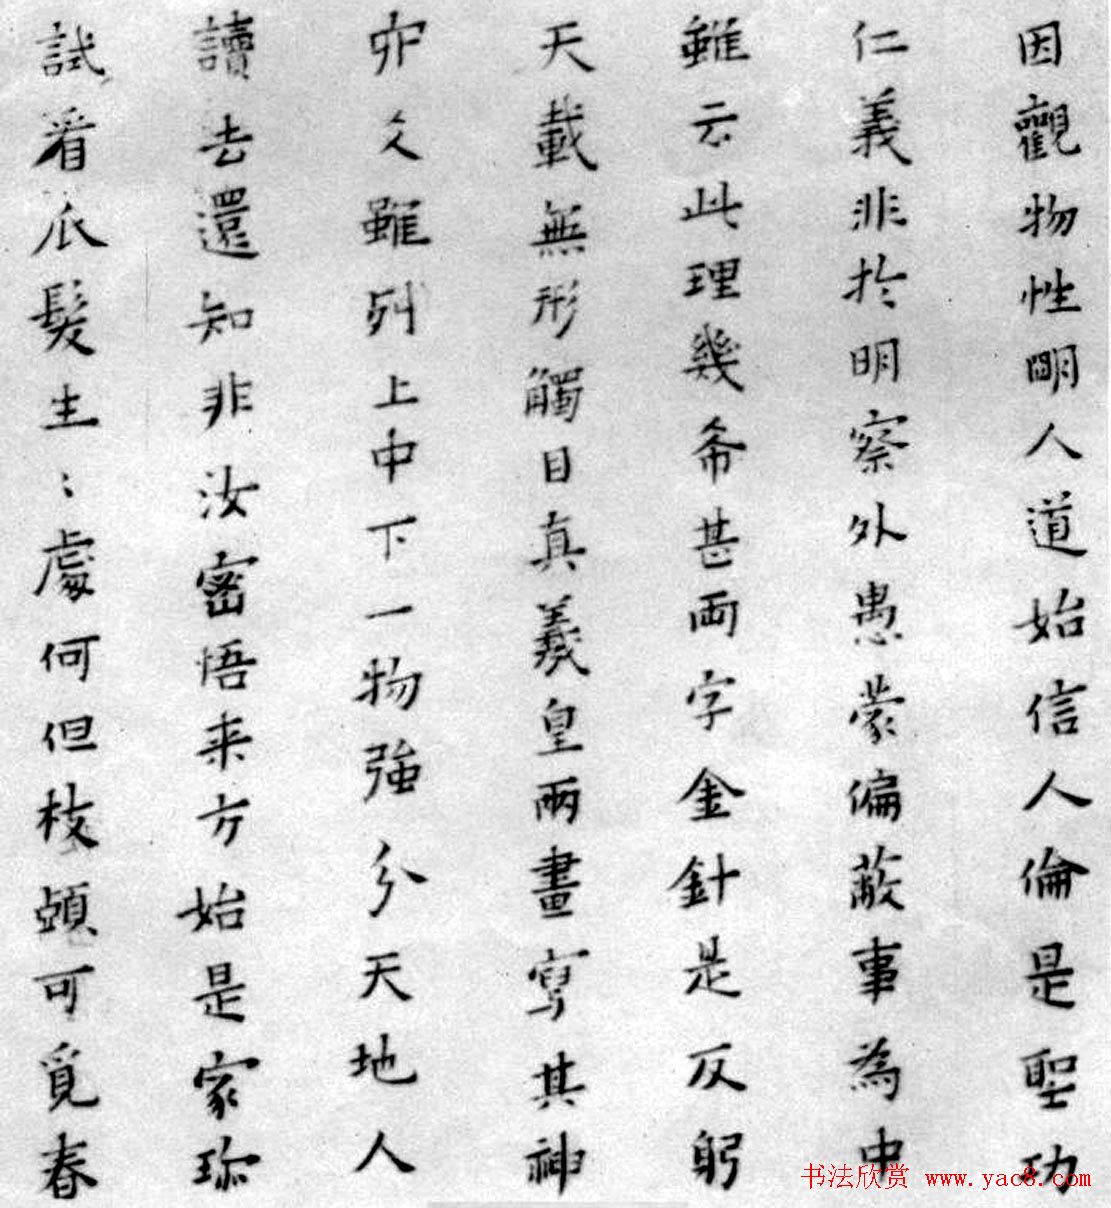 因觀物性明人道始信人倫是聖功
仁義非於明察外愚蒙偏蔽事為中
雖云此理幾希甚两字金針是反躬
天載無形觸目真羲皇兩畫寫其神
爻雖列上中下一物強分天地人
讀去還知非汝密悟来方始是家珎
試看爪髮生〻處何但枝頭可覓春
书法欣赏 www.yac8.com